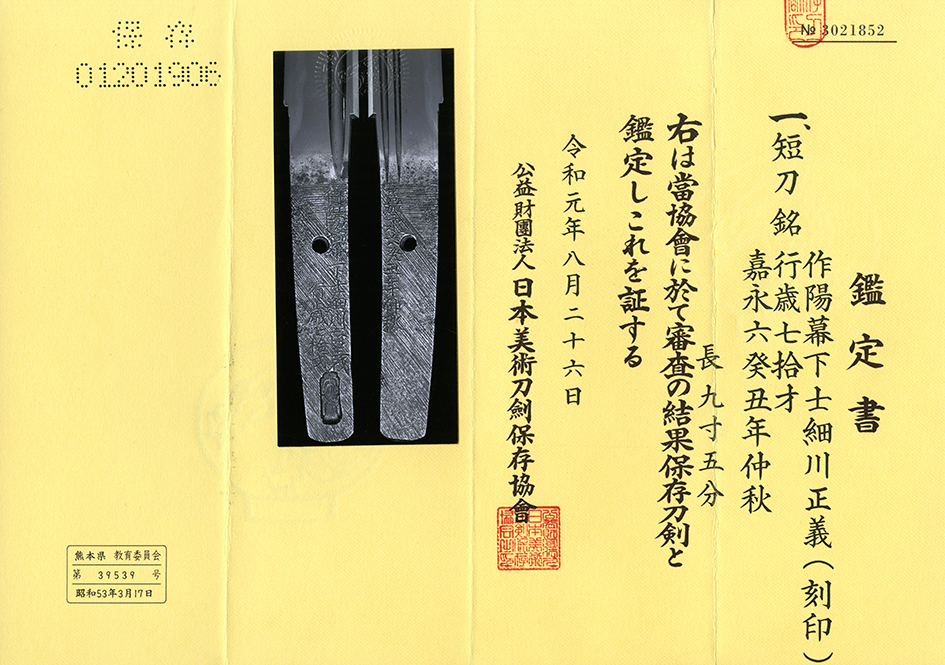 № 3021852
鑑定書
一、短刀 銘 作陽幕下士細川正義(刻印)
行歳七拾才
嘉永六癸丑年仲秋
長 九寸五分
右は當協會に於て審査の結果保存刀剣と
鑑定しこれを証する
令和元年八月二十六日
公益財團法人日本美術刀劍保存協會
保存
01201906
熊本県 教育委員会
第 39539 号
昭和53年3月17日